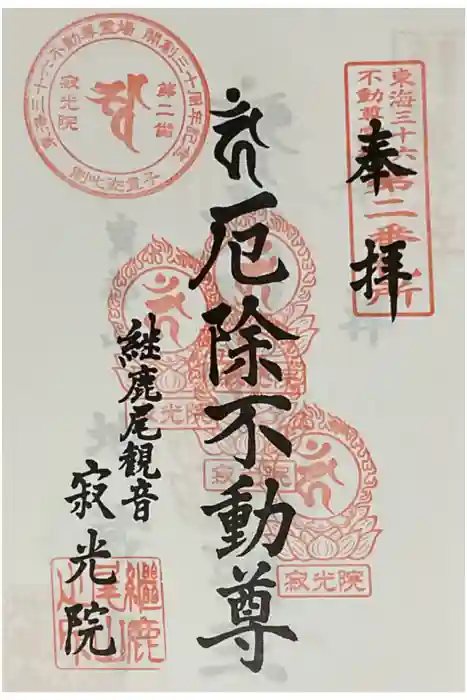 奉拝
東海三十六
不動尊
第二番
厄除不動尊
継鹿尾観音
寂光院
東海三十六不動尊霊場 開創三十周年記念
第二番
寂光院
寂光院
寂光院
寂光院
継鹿
尾山